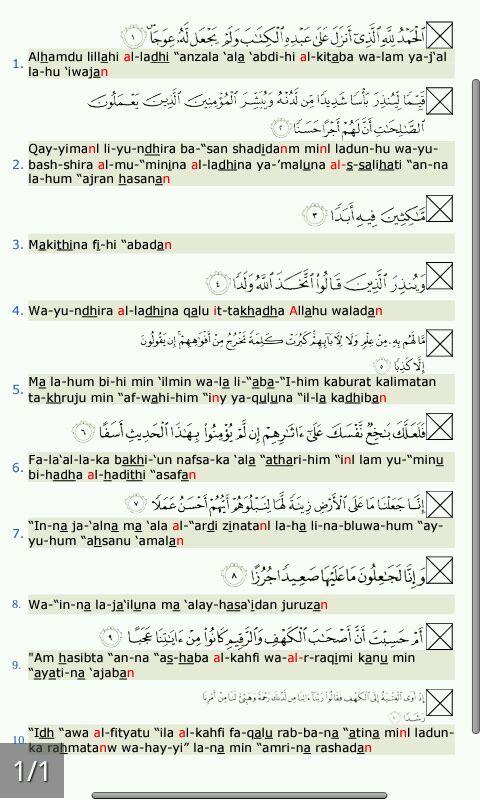 الْحَمْدُ لِلَّهِ الَّذِي أَنزَلَ عَلَىٰ عَبْدِهِ الْكِتَابَ وَلَمْ يَجْعَل لَّهُ عِوَجًا ۜ ١
1. Alhamdu lillahi al-ladhi “anzala ‘ala ‘abdi-hi al-kitaba wa-lam ya-j‘al
la-hu ‘iwajan
قَيِّمًا لِّيُنذِرَ بَأْسًا شَدِيدًا مِّن لَّدُنْهُ وَيُبَشِّرَ الْمُؤْمِنِينَ الَّذِينَ يَعْمَلُونَ
الصَّالِحَاتِ أَنَّ لَهُمْ أَجْرًا حَسَنًا ٢
2. Qay-yimanl li-yu-ndhira ba-“san shadidanm minl ladun-hu wa-yu-
bash-shira al-mu-“minina al-ladhina ya-‘maluna al-s-salihati “an-na
la-hum “ajran hasanan
مَّاكِثِينَ فِيهِ أَبَدًا ٣
3. Makithina fi-hi “abadan
وَيُنذِرَ الَّذِينَ قَالُوا اتَّخَذَ اللَّهُ وَلَدًا ٤
4. Wa-yu-ndhira al-ladhina qalu it-takhadha Allahu waladan
مَّا لَهُم بِهِ مِنْ عِلْمٍ وَلَا لِآبَائِهِمْ كَبُرَتْ كَلِمَةً تَخْرُجُ مِنْ أَفْوَاهِهِمْ إِن يَقُولُونَ
إِلَّا كَذِبًا ٥
5. Ma la-hum bi-hi min ‘ilmin wa-la li-“aba-“I-him kaburat kalimatan
ta-khruju min “af-wahi-him “iny ya-quluna “il-la kadhiban
فَلَعَلَّكَ بَاخِعٌ نَّفْسَكَ عَلَىٰ آثَارِهِمْ إِن لَّمْ يُؤْمِنُوا بِهَٰذَا الْحَدِيثِ أَسَفًا ٦
6. Fa-la‘al-la-ka bakhi-‘un nafsa-ka ‘ala “athari-him “inl lam yu-“minu
bi-hadha al-hadithi “asafan
إِنَّا جَعَلْنَا مَا عَلَى الْأَرْضِ زِينَةً لَّهَا لِنَبْلُوَهُمْ أَيُّهُمْ أَحْسَنُ عَمَلًا ٧
7. “In-na ja-‘alna ma ‘ala al-“ardi zinatanl la-ha li-na-bluwa-hum “ay-
yu-hum “ahsanu ‘amalan
وَإِنَّا لَجَاعِلُونَ مَا عَلَيْهَا صَعِيدًا جُرُزًا ٨
8. Wa-“in-na la-ja‘iluna ma ‘alay-hasa‘idan juruzan
أَمْ حَسِبْتَ أَنَّ أَصْحَابَ الْكَهْفِ وَالرَّقِيمِ كَانُوا مِنْ آيَاتِنَا عَجَبًا ٩
9. "Am hasibta “an-na “as-haba al-kahfi wa-al-r-raqimi kanu min
“ayati-na ‘ajaban
إِذْ أَوَى الْفِتْيَةُ إِلَى الْكَهْفِ فَقَالُوا رَبَّنَا آتِنَا مِن لَّدُنكَ رَحْمَةً وَهَيِّئْ لَنَا مِنْ أَمْرِنَا
رَشَدًا ١٠
10. “Idh “awa al-fityatu “ila al-kahfi fa-qalu rab-ba-na “atina minl ladun-
ka rahmatanw wa-hay-yi” la-na min “amri-na rashadan
1/1